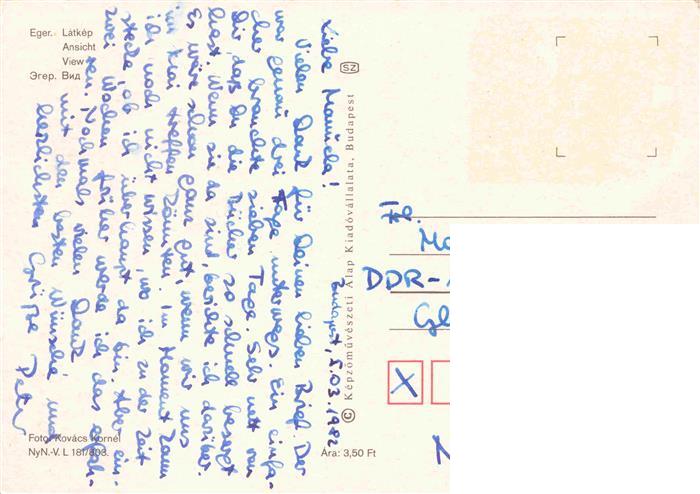 Eger. Látkép
Ansicht
View
Эгер. Вид
SZ
Budapest, 5.03.1982
Liebe Manuela!
Vielen Dank für Deinen lieben Brief. Der
war genau drei Tage unterwegs. Ein einfa-
cher brauchte sieben Tage. Sehr nett von
Dir, daß Du die Bücher so schnell besorgt
hast. Wenn sie da sind, berichte ich darüber.
Es wäre schon ganz gut, wenn wir uns
im Mai treffen könnten. Im Moment kann
ich noch nicht wissen, wo ich zu der Zeit
stecke, ob ich überhaupt da bin. Aber ein-
zwei Wochen früher werde ich das erfah-
ren. Nochmals vielen Dank
mit den besten Wünschen und
herzlichsten Grüße
Peter
© Képzőművészeti Alap Kiadóvállalata, Budapest
DDR-
X
Foto: Kovács Kornél
NyN.-V. L 181/803.
Ára: 3,50 Ft